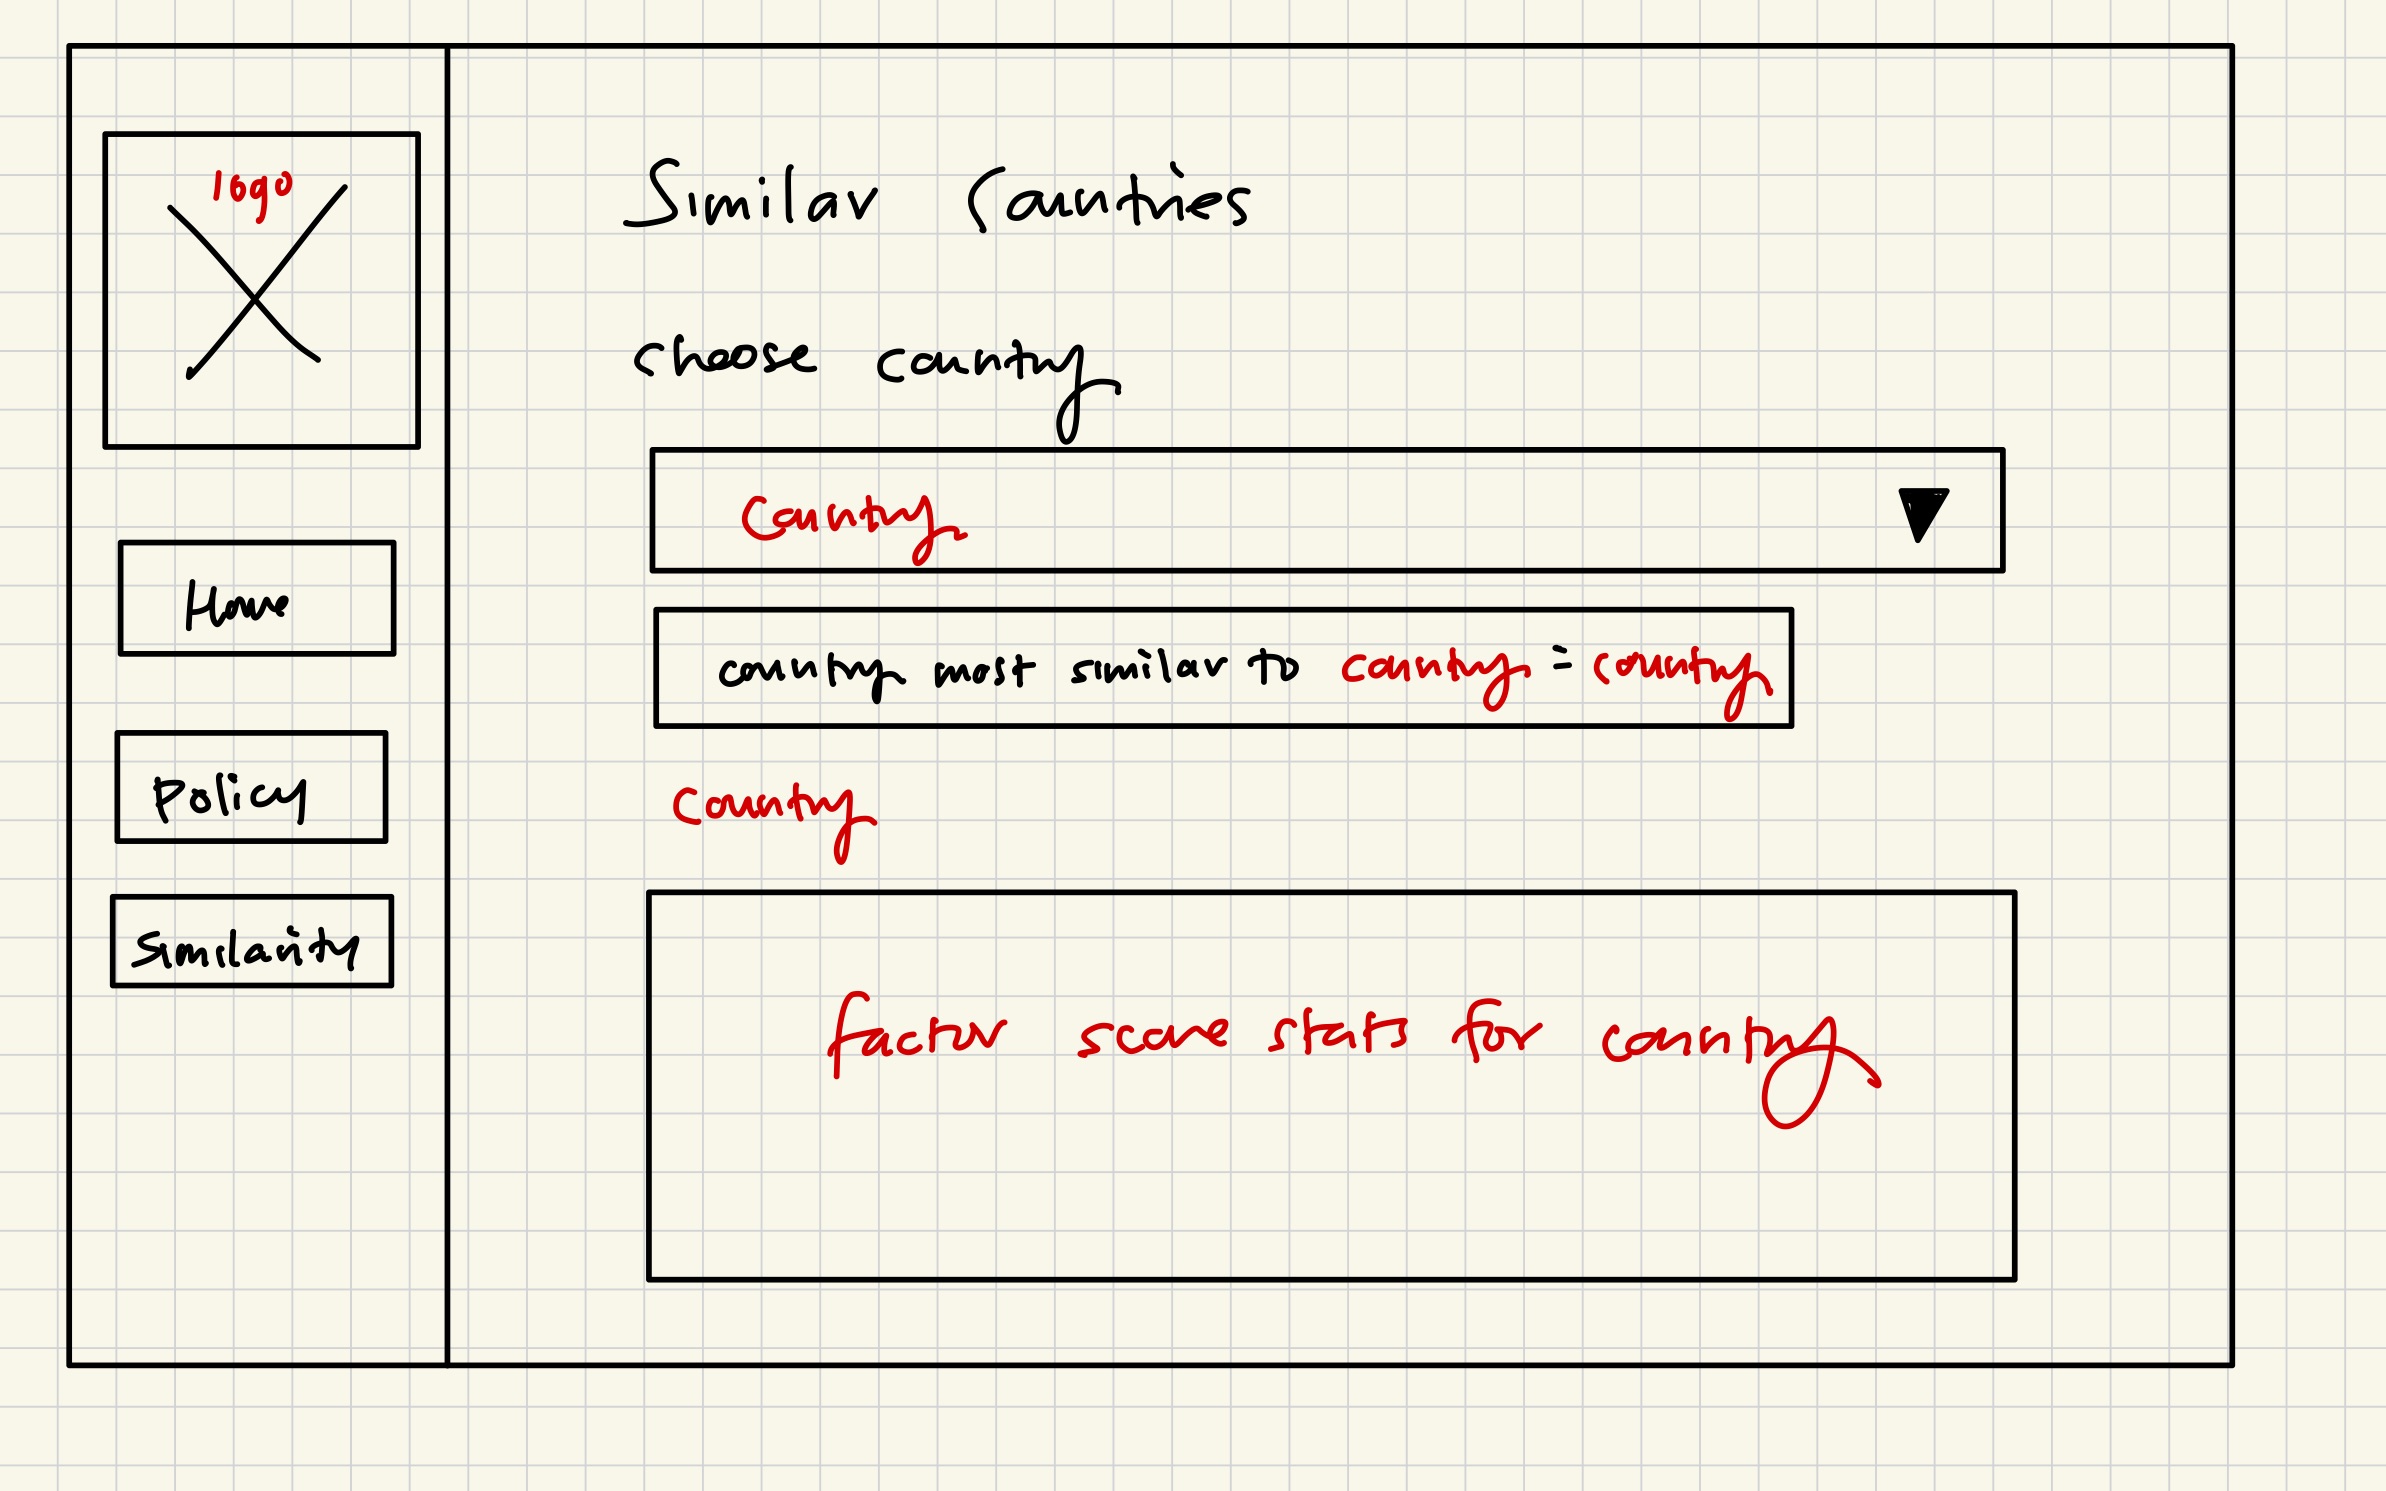 logo
Home
Policy
Similarity
Similar Countries
choose country
Country
country most similar to country = country
country
factor score stats for country